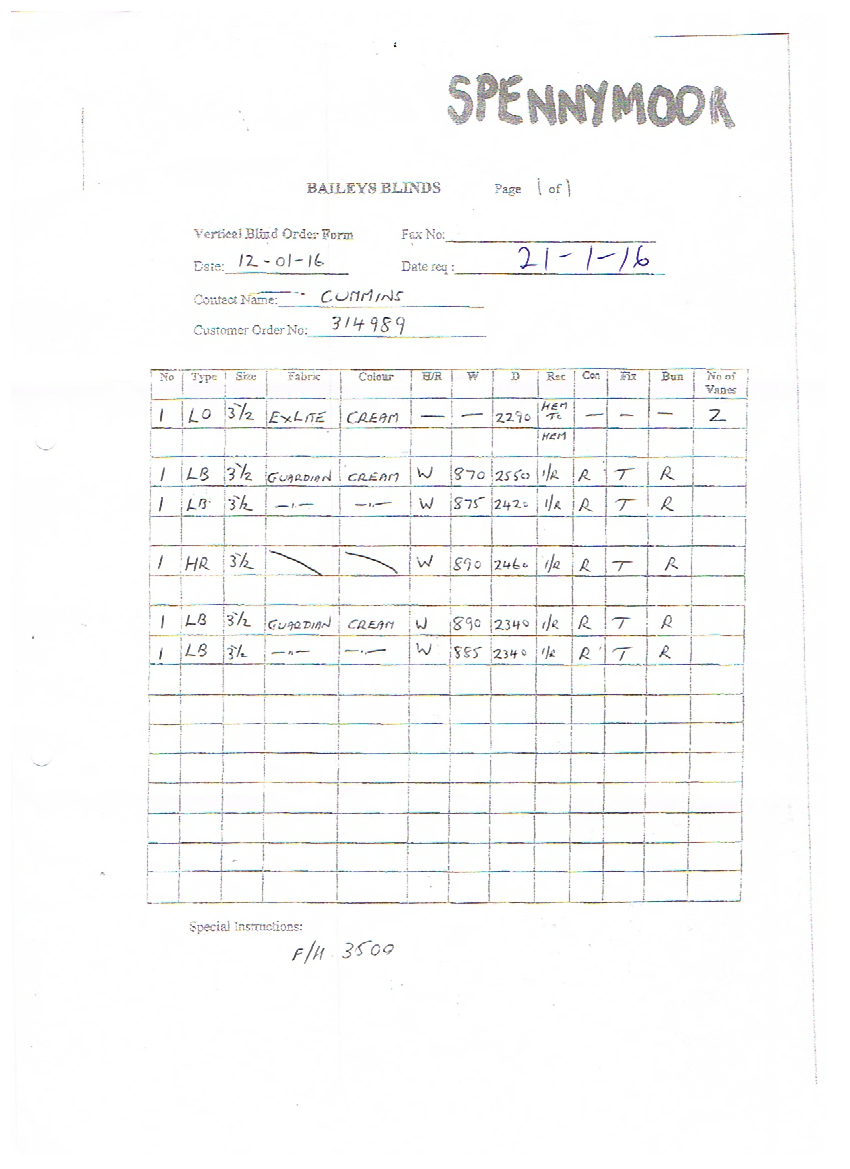 SPENNYMOOR
BAILEYS BLINDS Page 1 of 1
Vertical Blind Order Form Fax No:
Date: 12-01-16 Date req: 21-1-16
Contact Name: CUMMINS
Customer Order No: 314989
No Type Size Fabric Colour H/R W D Rec Con Fix Bun No of Vanes
1 LO 3½ EXLITE CREAM — — 2290 HEM TO HEM — — — 2
1 LB 3½ GUARDIAN CREAM W 870 2550 1/R R T R
1 LB 3½ —"— —"— W 875 2420 1/R R T R
1 HR 3½ W 890 2460 1/R R T R
1 LB 3½ GUARDIAN CREAM W 890 2340 1/R R T R
1 LB 3½ —"— —"— W 885 2340 1/R R T R
Special Instructions:
F/H 3500